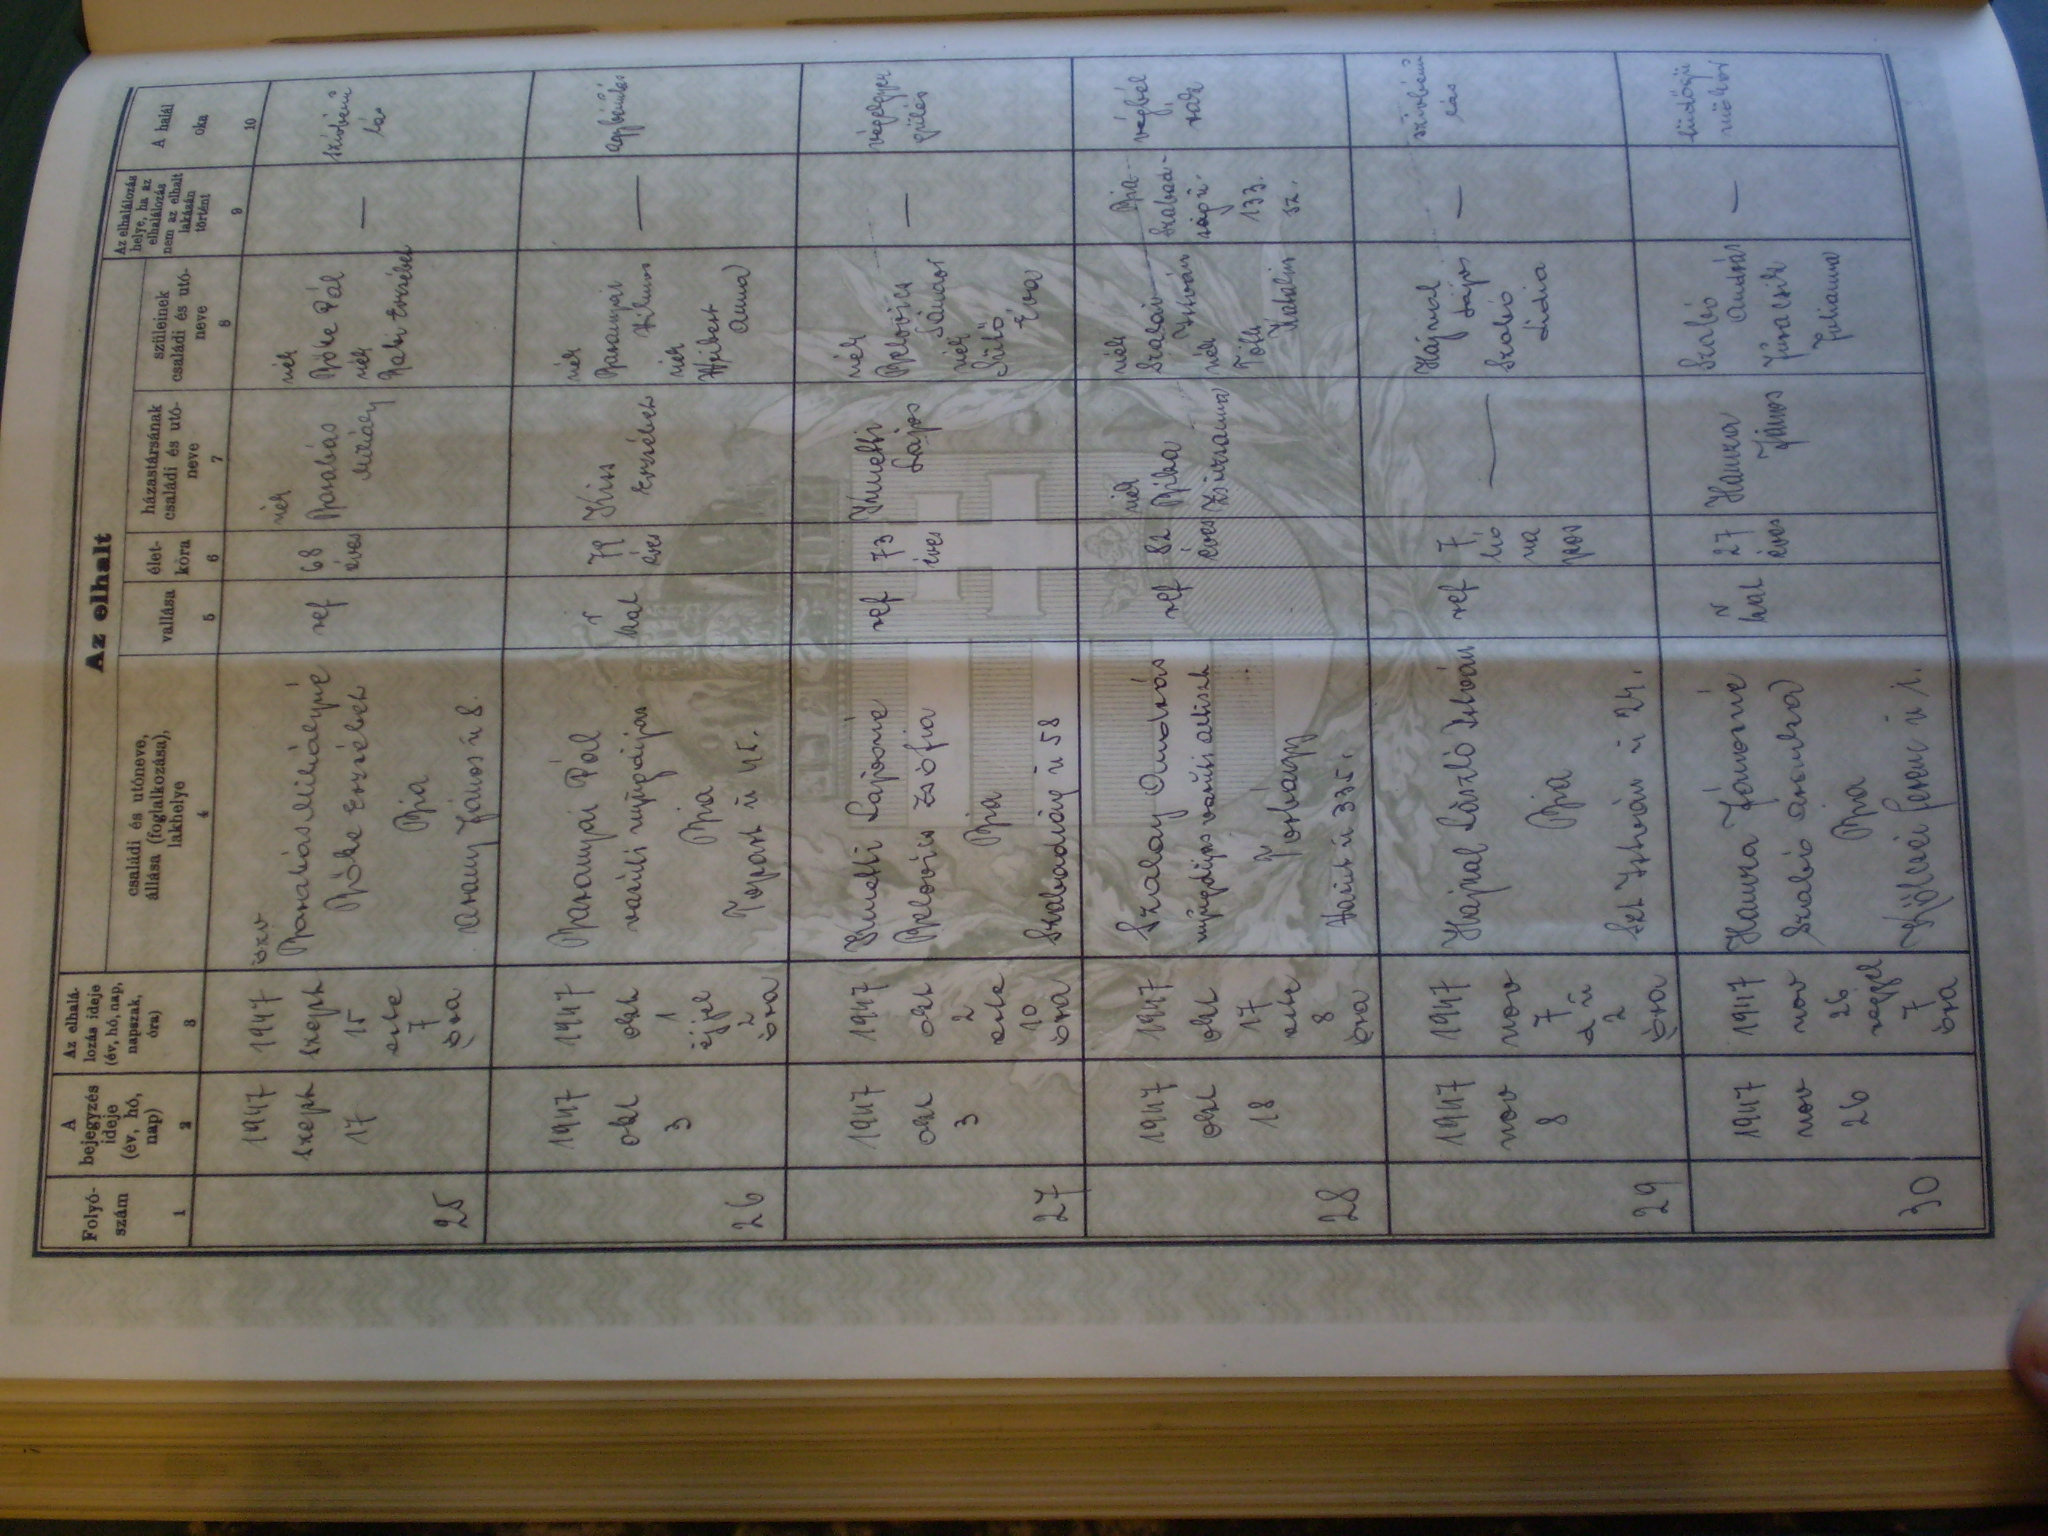 Az elhalt
Folyó-
szám
A
bejegyzés
ideje
(év, hó,
nap)
Az elhalá-
lozás ideje
(év, hó, nap,
napszak,
óra)
családi és utóneve,
állása (foglalkozása),
lakhelye
vallása
élet-
kora
házastársának
családi és utó-
neve
szüleinek
családi és utó-
neve
Az elhalálozás
helye, ha az
elhalálozás
nem az elhalt
lakásán
történt
A halál
oka
1
2
3
4
5
6
7
8
9
10
25
1947
szept
17
1947
szept
15
este
7
óra
özv
Barabás Mihályné
Bőke Erzsébet
Bia
Arany János u 8.
ref
68
éves
néh
Barabás
Mihály
néh
Bőke Pál
néh
Erzsébet
—
szívbénu
lás
26
1947
okt
3
1947
okt
1
éjjel
2
óra
Baranyai Pál
vasuti nyugdíjas
Bia
u 45.
r
kat
79
éves
Kiss
Erzsébet
néh
Baranyai
Vilmos
néh
Anna
—
27
1947
okt
3
1947
okt
2
este
10
óra
Kmetti Lajosné
Zsófia
Bia
Szabadság u 58
ref
73
éves
Kmetti
Lajos
néh
Sándor
néh
Éva
—
végelgyen
gülés
28
1947
okt
18
1947
okt
17
este
8
óra
Szalay András
nyugdíjas vasuti altiszt
Torbágy
u 335.
ref
82
éves
néh
Zsuzsanna
néh
István
néh
Tóth
Katalin
Bia
Szabad-
ság u.
133.
sz.
végbél
rák
29
1947
nov
8
1947
nov
7
d u
2
óra
Hajnal László István
Bia
Szt István u 24.
ref
7
hó
na
pos
—
Hajnal
Lajos
Szabó
Lidia
—
szívbénu
lás
30
1947
nov
26
1947
nov
26
reggel
7
óra
Hanzra Jánosné
Szabó
Bia
Kölcsei Ferenc u 1.
r
kat
27
éves
János
Szabó
András
Julianna
—